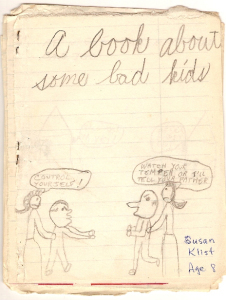 A book about
some bad kids
CONTROL
YOURSELF!
WATCH YOUR
TEMPER OR I'LL
TELL YOUR FATHER
Susan
Age 8